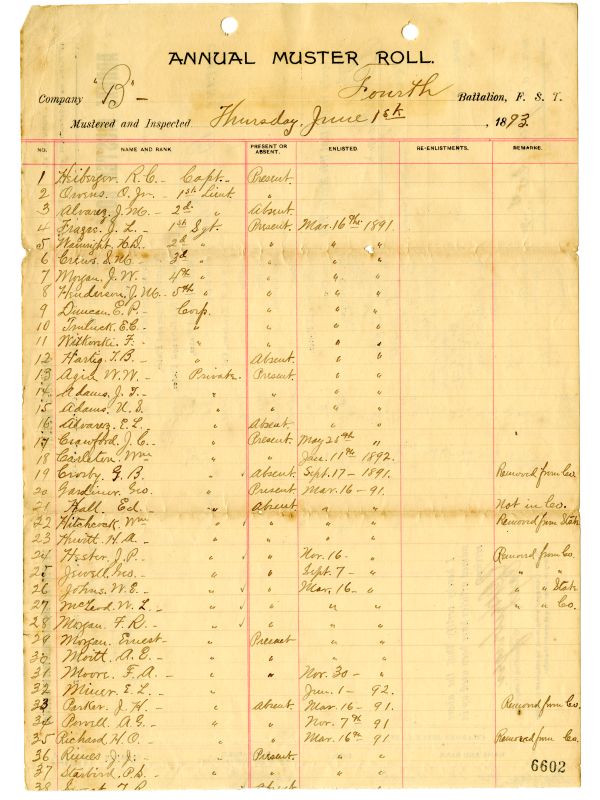 ANNUAL MUSTER ROLL.
Company "B" – Fourth Battalion, F. S. T.
Mustered and Inspected Thursday, June 1st, 1893.
NO. NAME AND RANK PRESENT OR ABSENT. ENLISTED. RE-ENLISTMENTS. REMARKS.
1 Heiberger. R. C. – Capt. – Present.
2 Owens. O. Jr. – 1st Lieut. "
3 Alvarez. J. M. – 2d " Absent.
4 J. L. – 1st Sgt. Present. Mar. 16th 1891.
5 2d " " " "
6 Crews. S. M. 3d " " " "
7 Morgan. J. W. – 4th " " " "
8 Henderson. J. M. – 5th " " " "
9 Duncan. E. P. – Corp. " " "
10 E. C. – " " " "
11 Witkovski. F. – " " " "
12 Hartig. T. B. – " Absent. " "
13 W. W. – Private. Present. " "
14 Adams. J. T. – " " " "
15 Adams. N. S. " " " "
16 Alvarez. E. L. – " Absent. " "
17 Crawford. J. C. – " Present. May 25th "
18 Carleton. Wm " " Jan. 11th 1892.
19 Crosby. G. B. " Absent. Sept. 17 – 1891. Removed from Co.
20 Gardiner. Geo. " Present. Mar. 16 – 91.
21 Hall. Ed. – " Absent " " Not in Co.
22 Hitchcock. Wm " " " " Removed from State
23 Hewitt. H. A. " " " "
24 Hester. J. P. – " " Nov. 16. – " Removed from Co.
25 Jewell. Geo. – " " Sept. 7 – " " "
26 Johns. W. E. – " " Mar. 16 – " " " State
27 McLeod. W. L. " " " " " " Co.
28 Morgan. F. R. – " " " "
29 Morgan. Ernest – " Present " "
30 A. E. – " " " "
31 Moore. F. A. " " Nov. 30 – "
32 Miner. E. L. " " Jan. 1 – 92.
33 Parker. J. H. – " Absent. Mar. 16 – 91. Removed from Co.
34 Powell. A. G. – " " Nov. 7th 91
35 Richard. H. O. " " Mar. 16th 91. Removed from Co.
36 J. J. – " Present. " "
37 Starbird. P. S. – " " " "
38 " Absent " "
6602